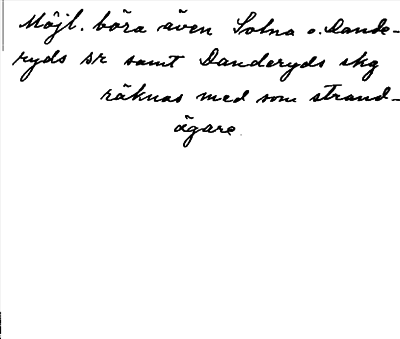 Möjl. böra även Solna o. Dande-
ryds sr samt Danderyds skg
räknas med som strand-
ägare.